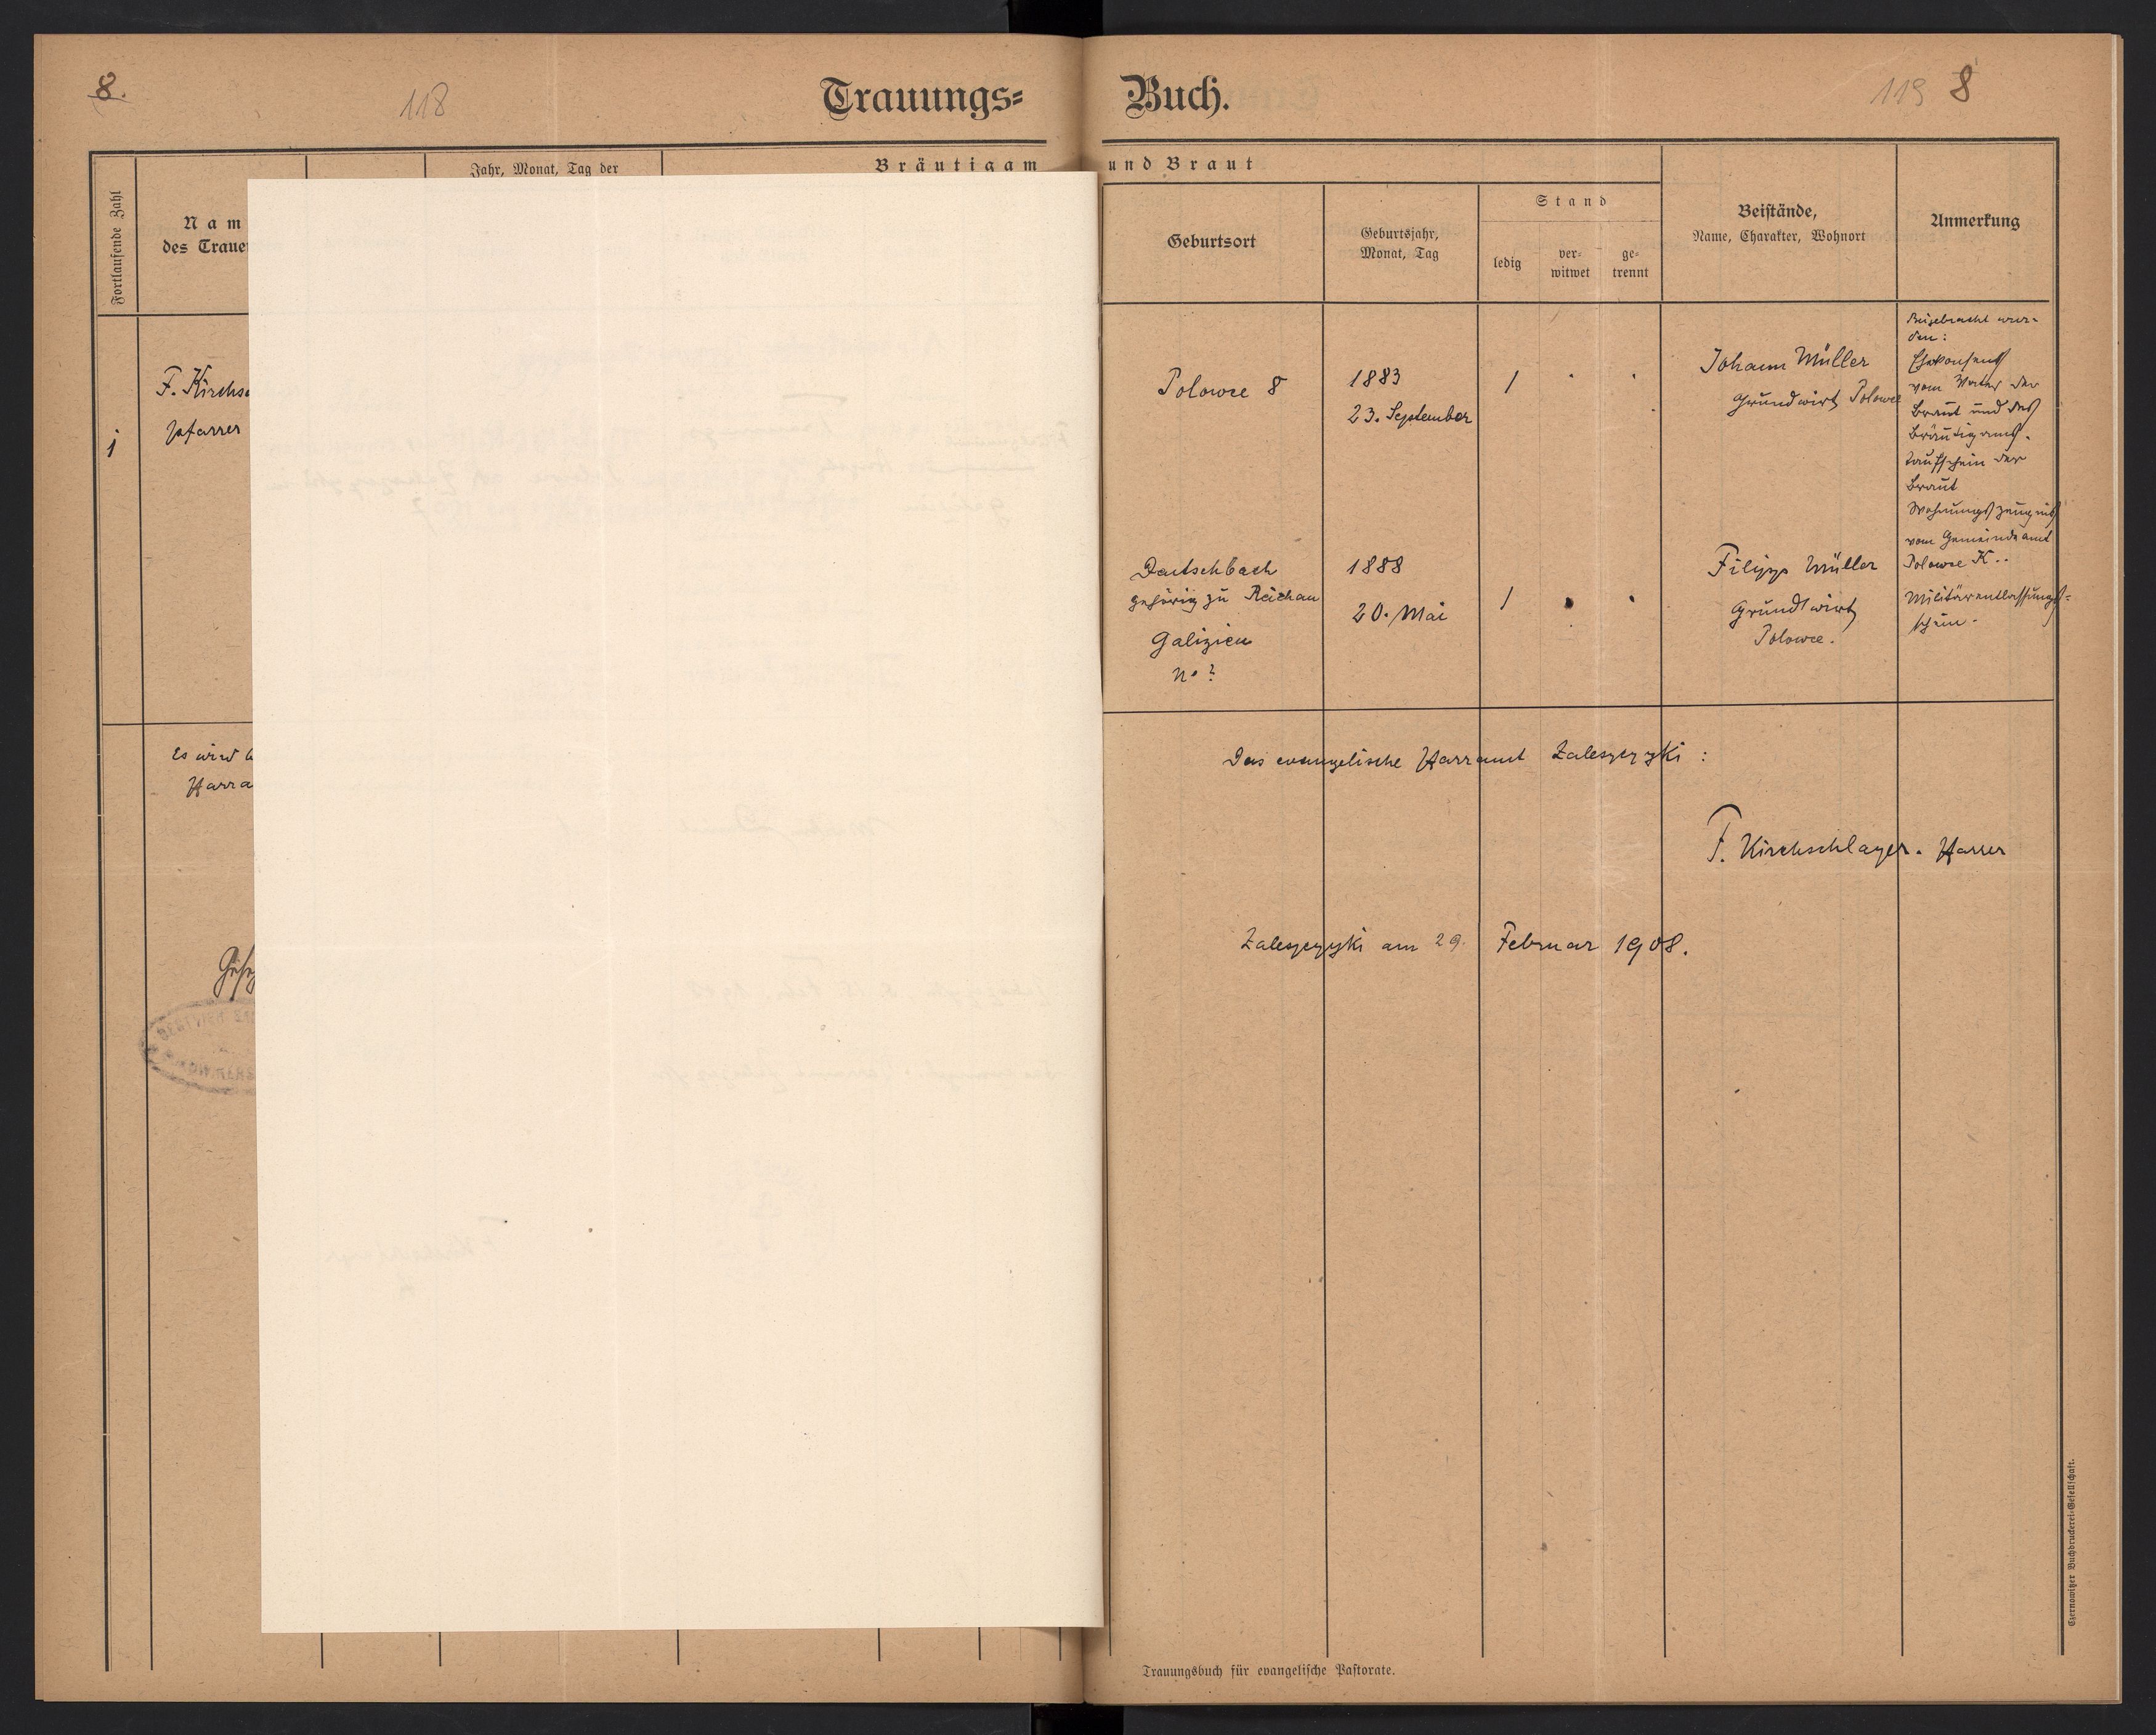 8.
118
Trauungs-
Buch.
119 8
Fortlaufende Zahl
Nam
des Traue
Jahr, Monat, Tag der
Bräutigam
und Braut
Geburtsort
Geburtsjahr,
Monat, Tag
Stand
ledig
ver-
witwet
ge-
trennt
Beistände,
Name, Charakter, Wohnort
Anmerkung
1
F. Kirchs
Pfarrer
Polowce 8
1883
23. September
1
Johann Müller
Grundwirt Polowce
Beigebracht wur-
den:
Ehekonsens
vom Vater der
Braut und des
Bräutigams.
Taufschein der
Braut
Wohnungszeugnis
vom Gemeindeamt
Polowce K..
Militärentlassungs-
schein.
Deutschbach
gehörig zu Reichau
Galizien
No ?
1888
20. Mai
1
Filipp Müller
Grundwirt
Polowce.
Es wird
Pfarra
Das evangelische Pfarramt Zaleszczyki :
F. Kirchschlager. Pfarrer
Zaleszczyki am 29. Februar 1908.
Trauungsbuch für evangelische Pastorate.
Czernowitzer Buchdruckerei-Gesellschaft.